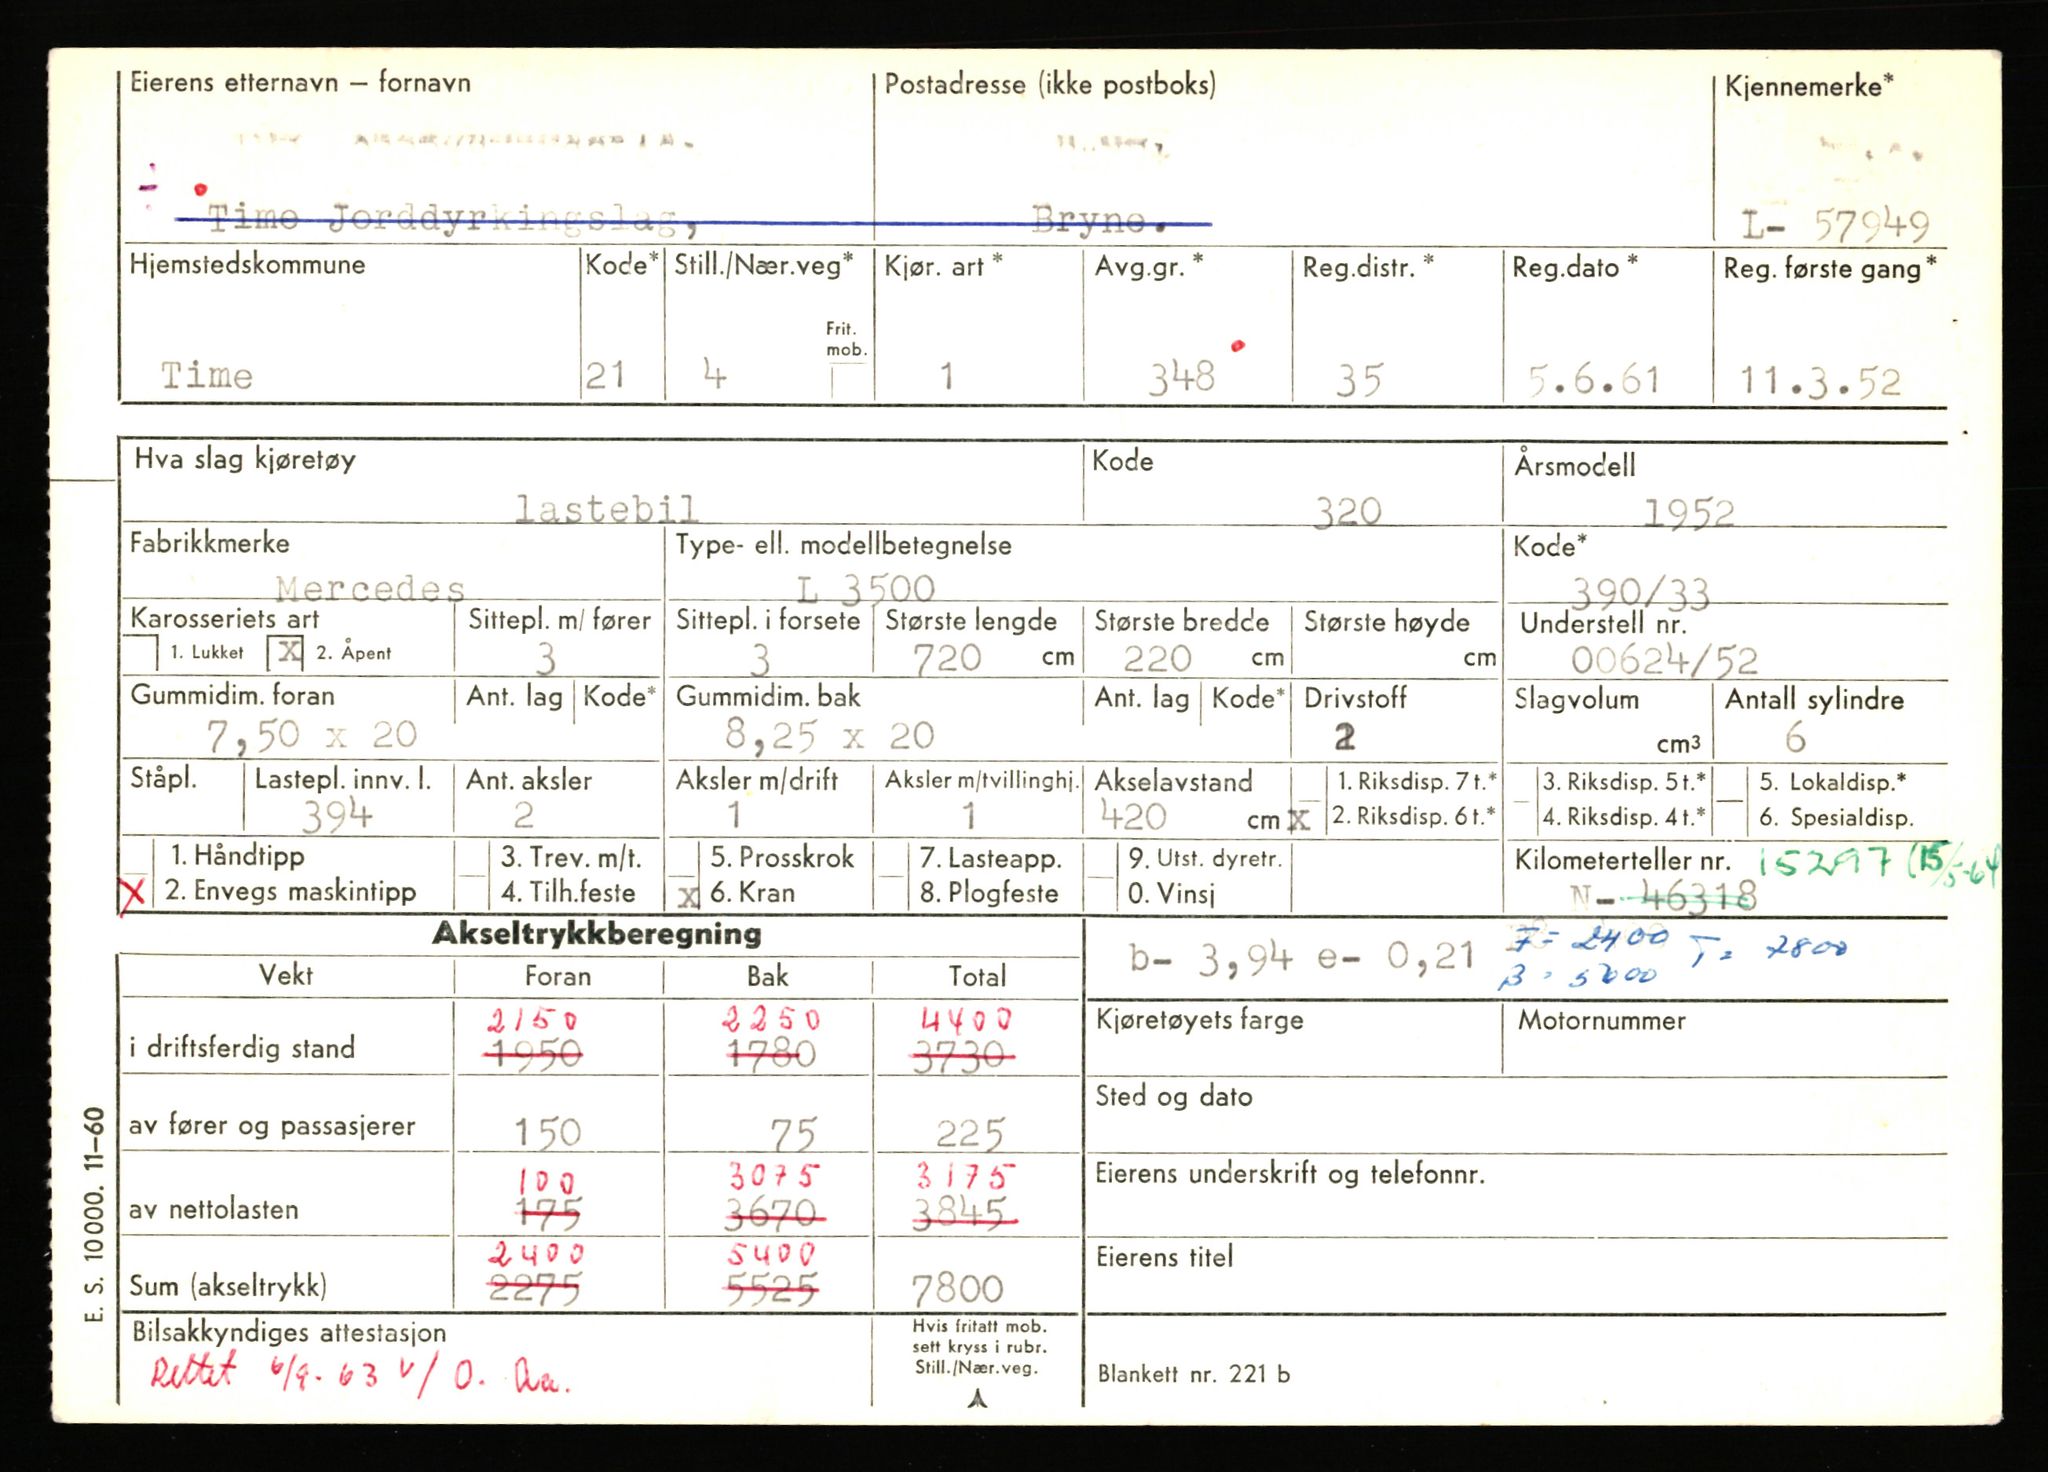 Eierens etternavn – fornavn Postadresse (ikke postboks) Kjennemerke*
Time Jorddyrkingslag, Bryne. L- 57949
Hjemstedskommune Kode* Still./Nær.veg* Kjør. art * Avg.gr. * Reg.distr. * Reg.dato * Reg. første gang*
Frit.
mob.
Time 21 4 1 348 35 5.6.61 11.3.52
Hva slag kjøretøy Kode Årsmodell
lastebil 320 1952
Fabrikkmerke Type- ell. modellbetegnelse Kode*
Mercedes L 3500 390/33
Karosseriets art Sittepl. m/ fører Sittepl. i forsete Største lengde Største bredde Største høyde Understell nr.
1. Lukket X 2. Åpent 3 3 720 cm 220 cm cm 00624/52
Gummidim. foran Ant. lag Kode* Gummidim. bak Ant. lag Kode* Drivstoff Slagvolum Antall sylindre
7,50 x 20 8,25 x 20 2 cm3 6
Ståpl. Lastepl. innv. l. Ant. aksler Aksler m/drift Aksler m/tvillinghj. Akselavstand 1. Riksdisp. 7 t.* 3. Riksdisp. 5 t.* 5. Lokaldisp.*
394 2 1 1 420 cm X 2. Riksdisp. 6 t.* 4. Riksdisp. 4 t.* 6. Spesialdisp.
1. Håndtipp 3. Trev. m/t. 5. Prosskrok 7. Lasteapp. 9. Utst. dyretr. Kilometerteller nr. 15297 (15/5-64)
X 2. Envegs maskintipp 4. Tilh.feste X 6. Kran 8. Plogfeste 0. Vinsj N- 46318
Akseltrykkberegning b- 3,94 e- 0,21 F= 2400 T= 7800
Vekt Foran Bak Total
2150 2250 4400 Kjøretøyets farge Motornummer
i driftsferdig stand 1950 1780 3730
Sted og dato
av fører og passasjerer 150 75 225
100 3075 3175 Eierens underskrift og telefonnr.
av nettolasten 175 3670 3845
2400 5400 Eierens titel
Sum (akseltrykk) 2275 5525 7800
Bilsakkyndiges attestasjon Hvis fritatt mob.
sett kryss i rubr.
Still./Nær.veg.
Rettet 6/9-63 v/ O. Aa.
Blankett nr. 221 b
E. S. 10000. 11–60